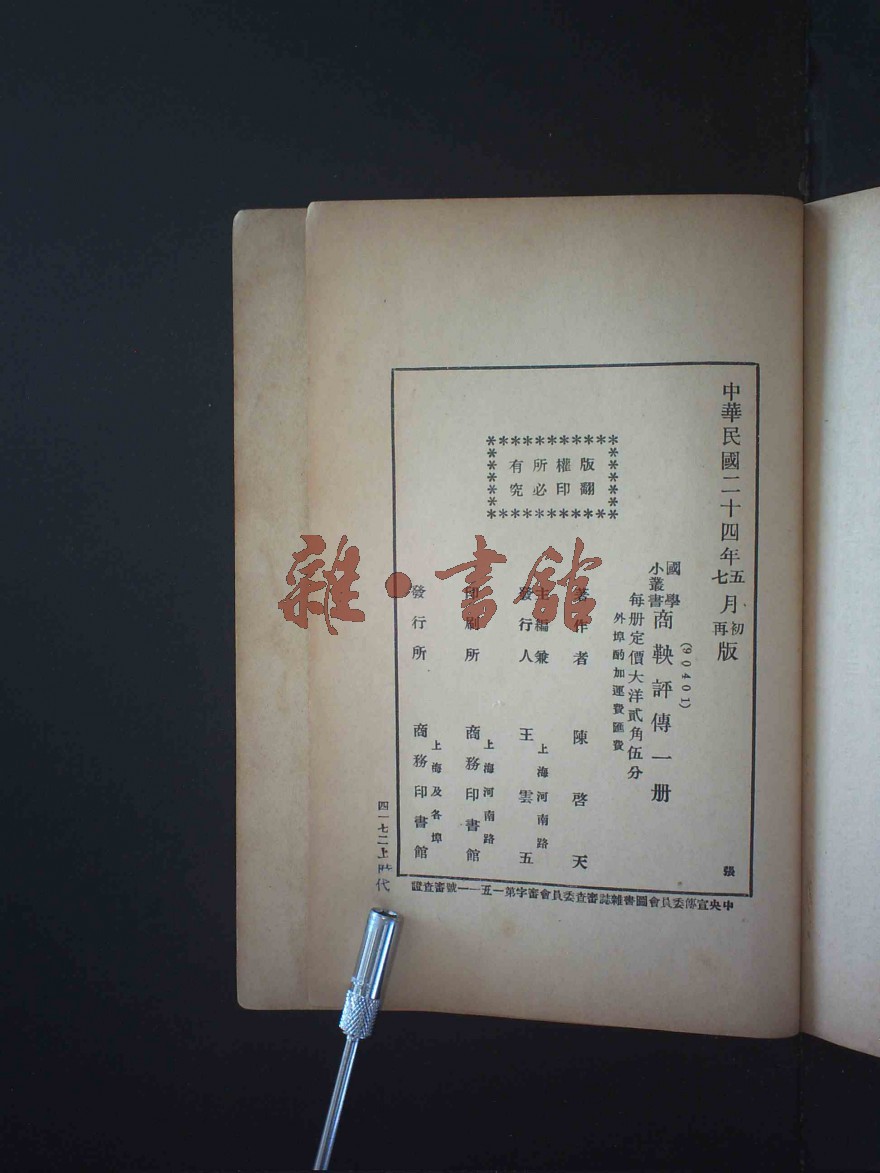 中華民國二十四年五月初版
七再
(90401)
國學小叢書 商鞅評傳一册
每册定價大洋貳角伍分
外埠酌加運費匯費
版權所有
翻印必究
著作者 陳啓天
主編兼發行人 王雲五
上海河南路
印刷所 商務印書館
上海河南路
發行所 商務印書館
上海及各埠
張
中央宣傳委員會圖書雜誌審查委員會審字第一五一一號審查證
四一七二上
代
雜·書館